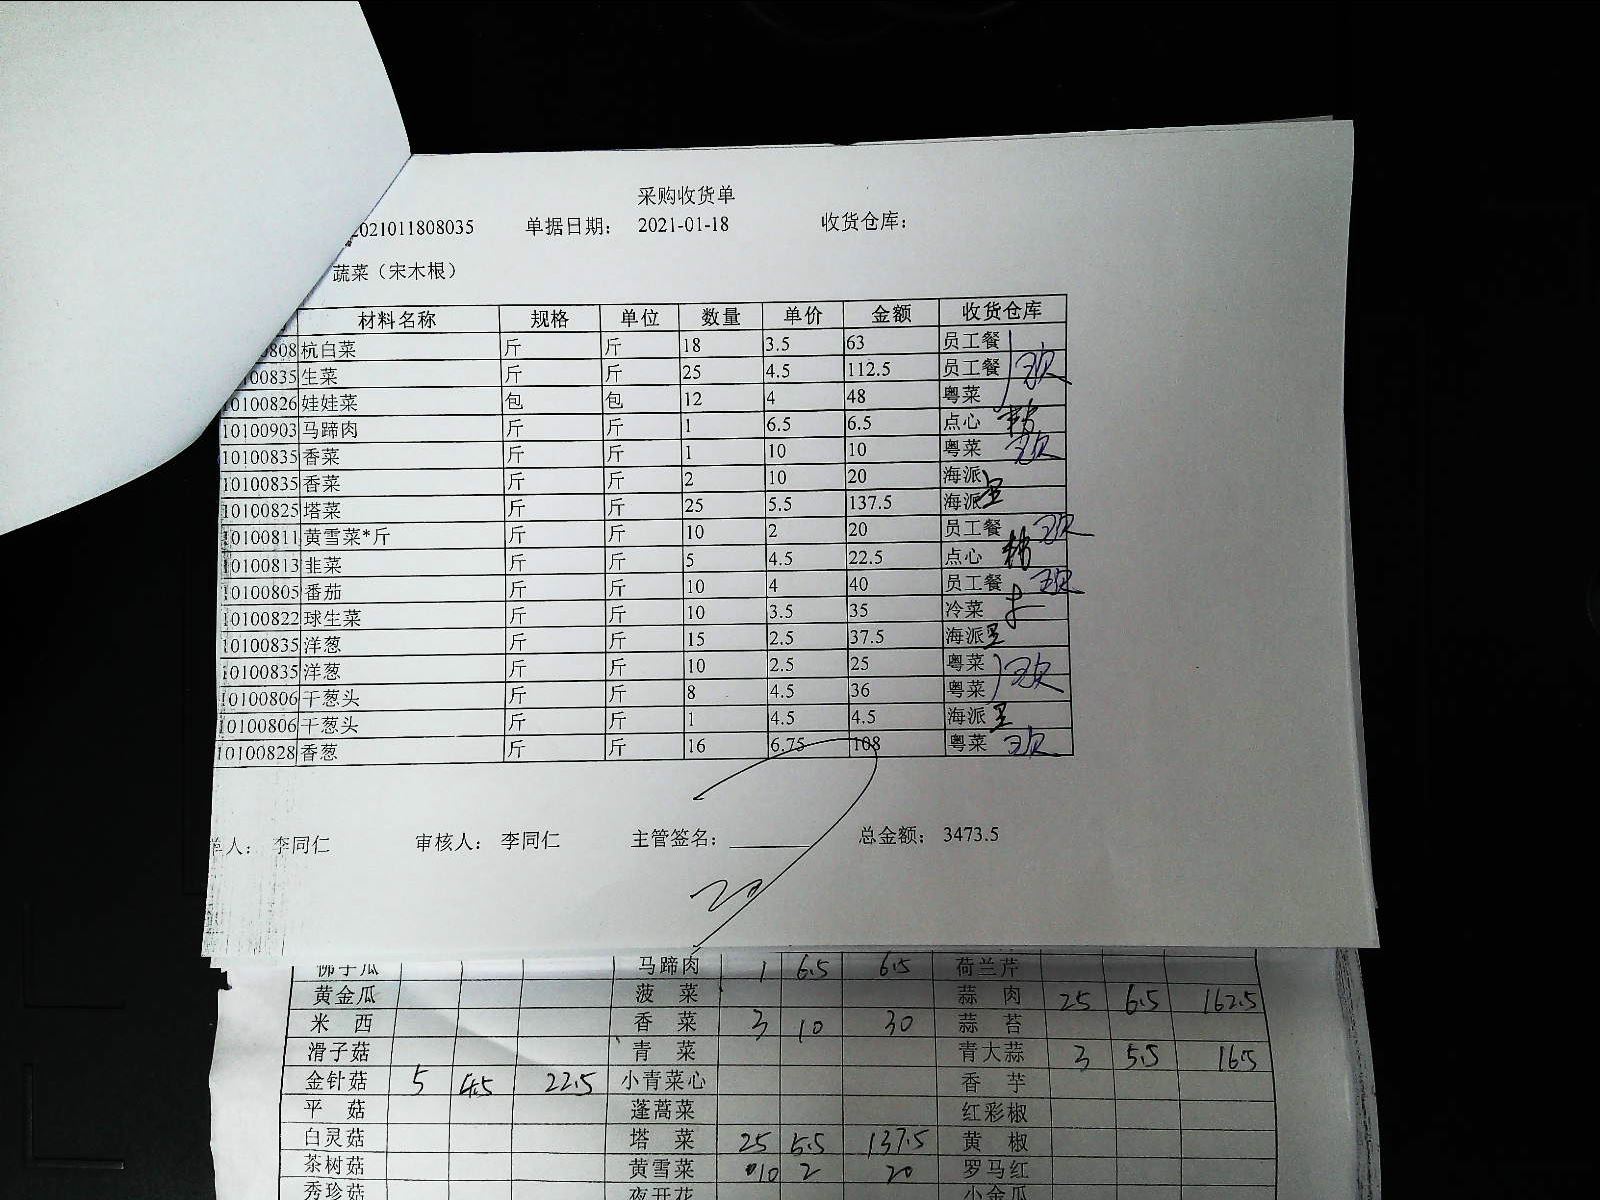 采购收货单
2021011808035 单据日期： 2021-01-18 收货仓库：
蔬菜（宋木根）
材料名称 规格 单位 数量 单价 金额 收货仓库
808 杭白菜 斤 斤 18 3.5 63 员工餐
100835 生菜 斤 斤 25 4.5 112.5 员工餐
10100826 娃娃菜 包 包 12 4 48 粤菜
10100903 马蹄肉 斤 斤 1 6.5 6.5 点心
10100835 香菜 斤 斤 1 10 10 粤菜
10100835 香菜 斤 斤 2 10 20 海派
10100825 塔菜 斤 斤 25 5.5 137.5 海派
10100811 黄雪菜*斤 斤 斤 10 2 20 员工餐
10100813 韭菜 斤 斤 5 4.5 22.5 点心
10100805 番茄 斤 斤 10 4 40 员工餐
10100822 球生菜 斤 斤 10 3.5 35 冷菜
10100835 洋葱 斤 斤 15 2.5 37.5 海派
10100835 洋葱 斤 斤 10 2.5 25 粤菜
10100806 干葱头 斤 斤 8 4.5 36 粤菜
10100806 干葱头 斤 斤 1 4.5 4.5 海派
10100828 香葱 斤 斤 16 6.75 108 粤菜
单人： 李同仁 审核人： 李同仁 主管签名： 总金额： 3473.5
佛手瓜 马蹄肉 1 6.5 6.5 荷兰芹
黄金瓜 菠菜 蒜肉 25 6.5 162.5
米西 香菜 3 10 30 蒜苔
滑子菇 青菜 青大蒜 3 5.5 16.5
金针菇 5 4.5 22.5 小青菜心 香芋
平菇 蓬蒿菜 红彩椒
白灵菇 塔菜 25 5.5 137.5 黄椒
茶树菇 黄雪菜 10 2 20 罗马红
秀珍菇 夜开花 小金瓜